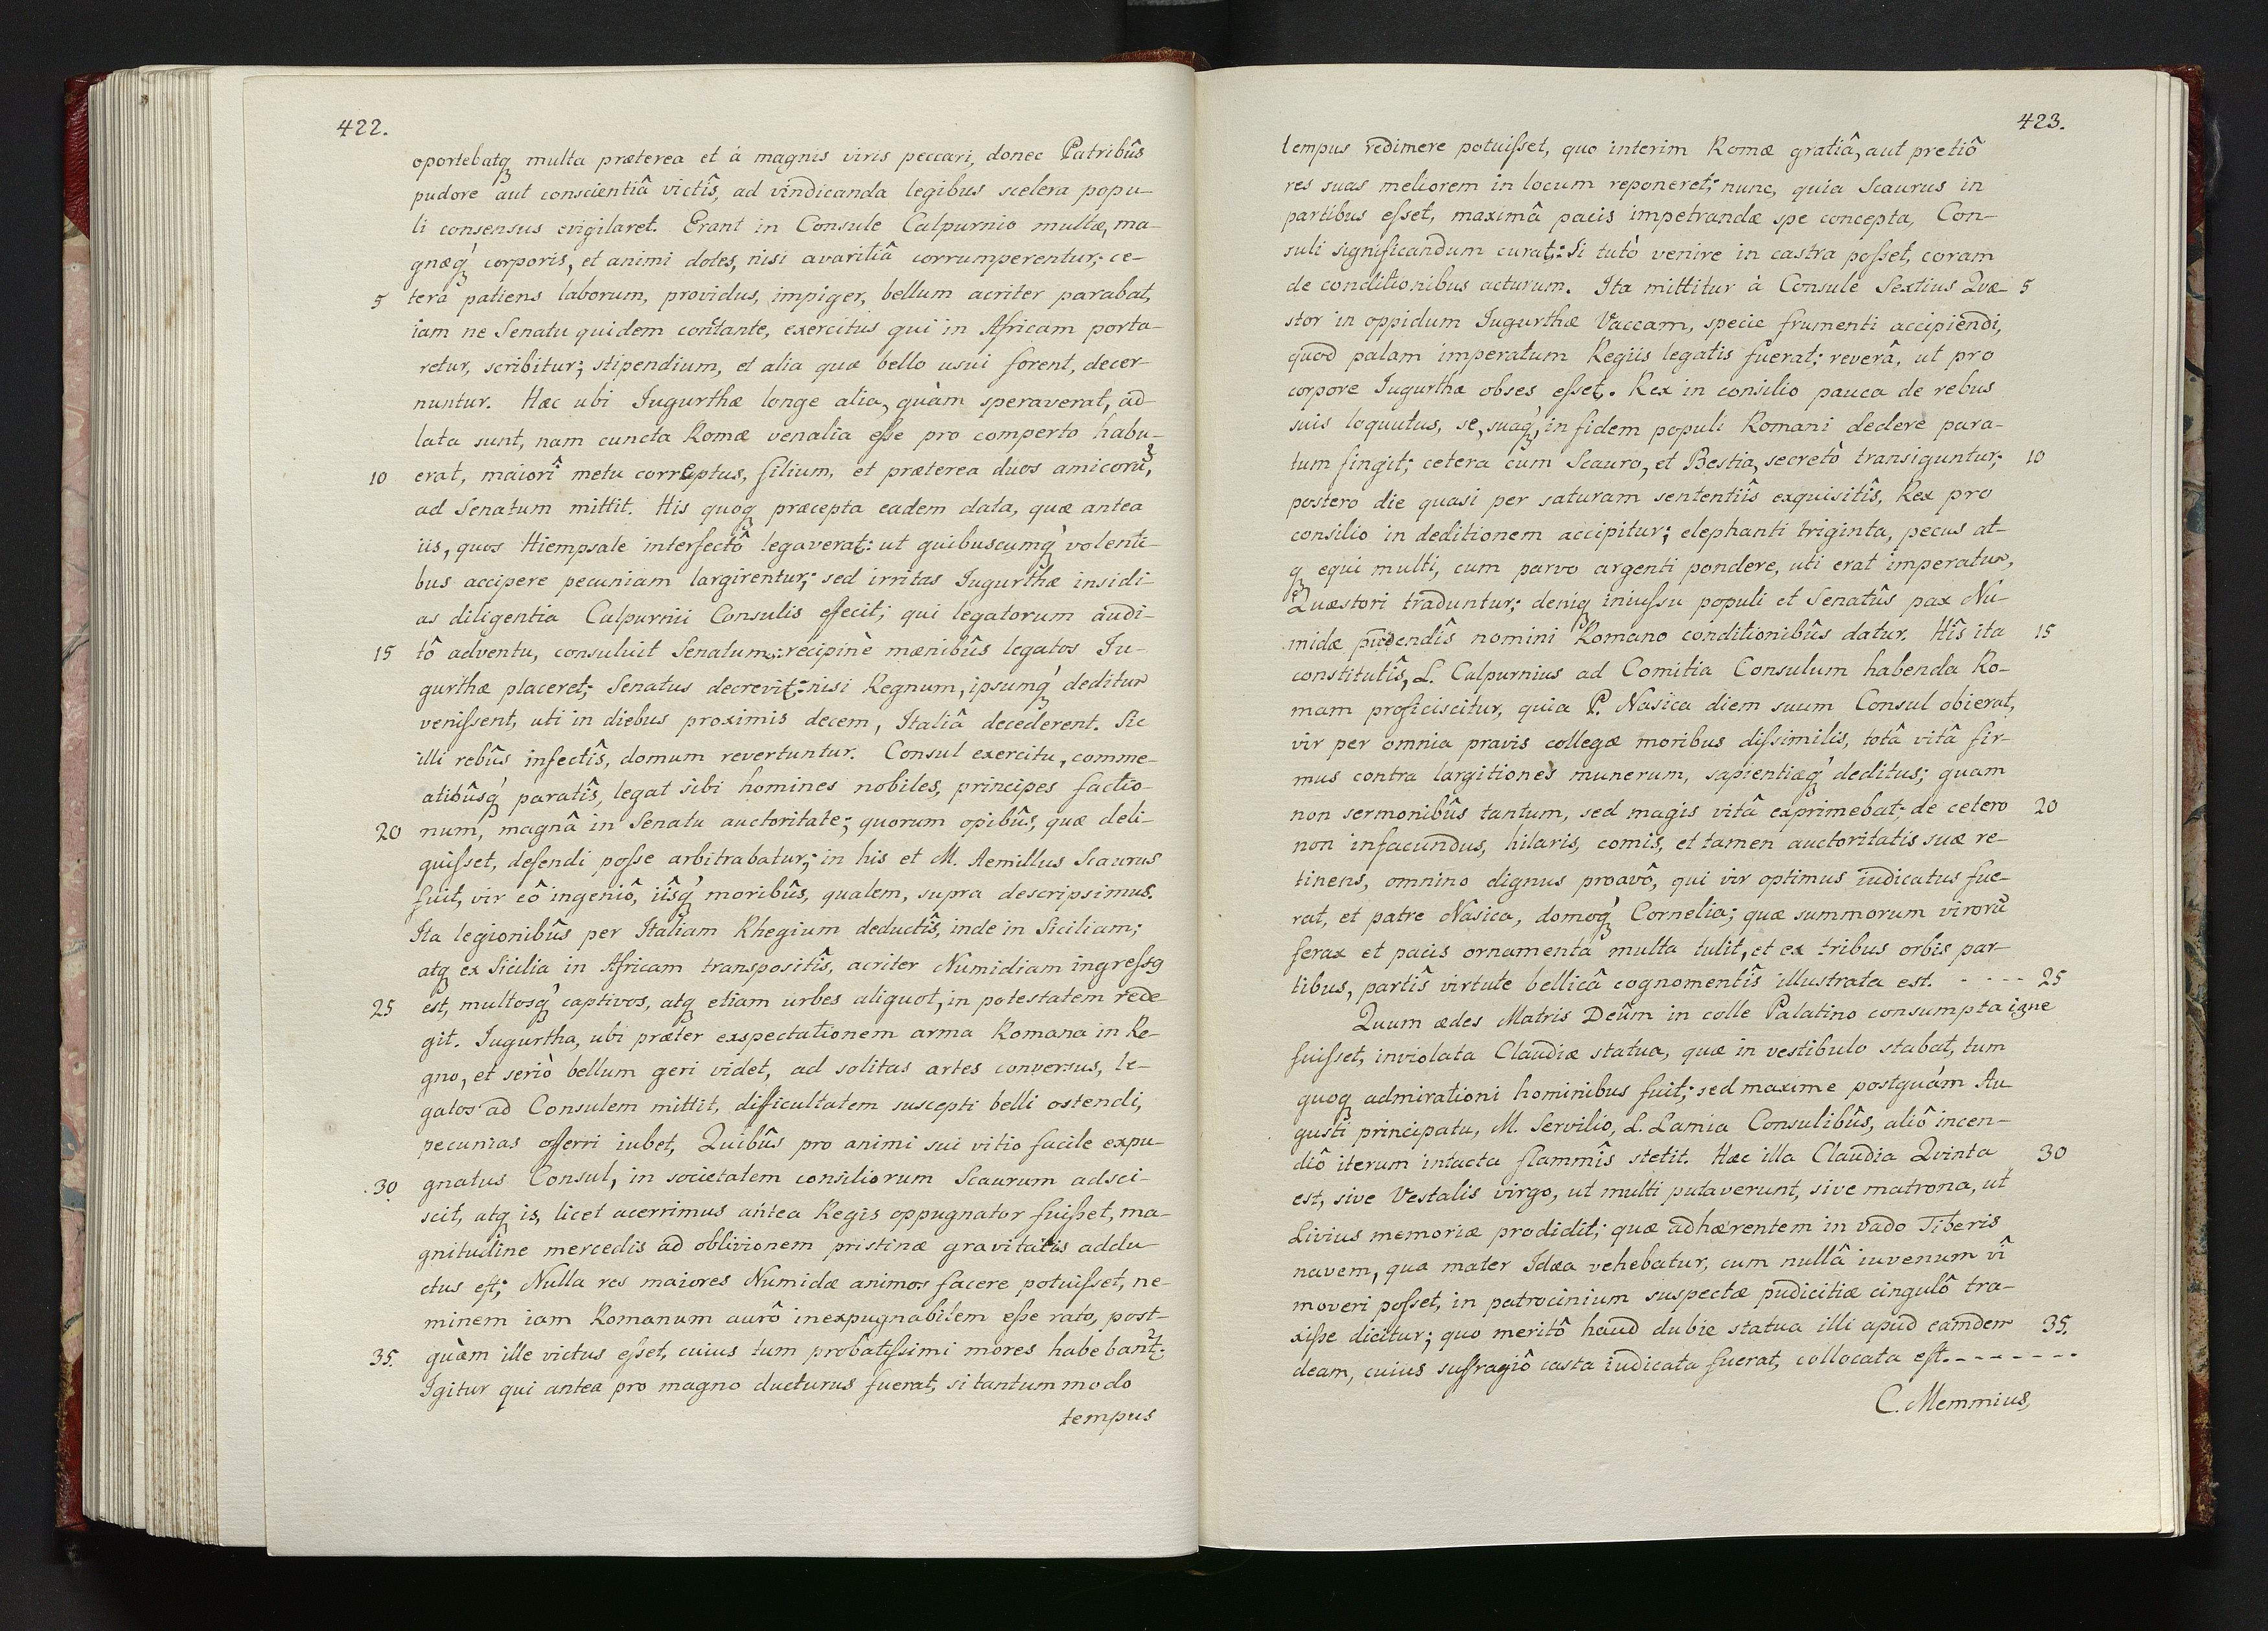 422.
oportebatq̨ multa præterea et á magnis viris peccari, donec Patribûs
pudore aut conscientiâ victîs, ad vindicanda legibus scelera popu-
li consensus evigilaret. Erant in Consule Calpurnio multæ, ma-
gnæq̨́ corporis, et animi dotes, nisi avaritiâ corrumperentur; ce-
5 tera patiens laborum, providus, impiger, bellum acriter parabat,
iam ne Senatu quidem contante, exercitus qui in Africam porta-
retur, scribitur; stipendium, et alia quæ bello usui forent, decer-
nuntur. Hæc ubi Iugurthæ longe alia, quàm speraverat, ad
lata sunt, nam cuncta Romæ venalia eſse pro comperto habu-
10 erat, maiorî metu correptus, filium, et præterea duos amicorũ,
ad Senatum mittit. His quoq̨ præcepta eadem data, quæ antea
iis, quos Hiempsale interfectô legaverat: ut quibuscumq̨́ volenti-
bus accipere pecuniam largirentur; sed irritas Iugurthæ insidi-
as diligentia Calpurnii Consulis effecit; qui legatorum audi-
15 tô adventu, consuluit Senatum: recipinè mænibûs legatos Iu-
gurthæ placeret; Senatus decrevit: nisi Regnum, ipsumq̨́ deditum
veniſsent, uti in diebus proximis decem, Italiâ decederent. Sic
illi rebûs infectîs, domum revertuntur. Consul exercitu, comme-
atibûsq̨́ paratîs, legat sibi homines nobiles, principes factio-
20 num, magnâ in Senatu auctoritate; quorum opibûs, quæ deli-
quiſset, defendi poſse arbitrabatur; in his et M. Aemillus Scaurus
fuit, vir eô ingeniô, iîsq̨́ moribûs, qualem, supra descripsimus.
Ita legionibûs per Italiam Rhegium deductîs, inde in Siciliam;
atq̨ ex Sicilia in Africam transpositîs, acriter Numidiam ingreſsꝰ
25 est, multosq̨́ captivos, atq̨ etiam urbes aliquot, in potestatem rede-
git. Iugurtha, ubi præter exspectationem arma Romana in Re-
gno, et seriò bellum geri videt, ad solitas artes conversus, le-
gatos ad Consulem mittit, difficultatem suscepti belli ostendi,
pecunias offerri iubet, Quibûs pro animi sui vitio facile expu-
30 gnatus Consul, in societatem consiliorum Scaurum adsci-
scit, atq̨ is, licet acerrimus antea Regis oppugnator fuiſset, ma-
gnitudine mercedis ad oblivionem pristinæ gravitatis addu-
ctus eſt; Nulla res maiores Numidæ animos facere potuiſset, ne-
minem iam Romanum aurô inexpugnabilem eſse rato, post-
35. quàm ille victus eſset, cuius tum probatiſsimi mores habebant;
Igitur qui antea pro magno ducturus fuerat, si tantummodo
tempus
423.
tempus redimere potuiſset, quo interim Romæ gratiâ, aut pretiô
res suas meliorem in locum reponeret; nunc, quia Scaurus in
partibus eſset, maximâ pacis impetrandæ spe concepta, Con-
suli significandum curat: Si tutò venire in castra poſset, coram
de conditionibus acturum. Ita mittitur à Consule Sextius Quæ- 5
stor in oppidum Iugurthæ Vaccam, specie frumenti accipiendi,
quod palam imperatum Regiis legatis fuerat; reverâ, ut pro
corpore Iugurthæ obses eſset. Rex in consilio pauca de rebus
suis loquutus, se, suaq̨́, in fidem populi Romani dedere para-
tum fingit; cetera cum Scauro, et Bestia, secretò transiguntur; 10
postero die quasi per saturam sententiîs exquisitîs, Rex pro
consilio in deditionem accipitur; elephanti triginta, pecus at-
q̨ equi multi, cum parvo argenti pondere, uti erat imperatum,
Quæstori traduntur; deniq̨ iniuſsu populi et Senatûs pax Nu-
midæ pudendîs nomini Romano conditionibûs datur. Hîs ita 15
constitutîs, L. Calpurnius ad Comitia Consulum habenda Ro-
mam proficiscitur, quia P. Nasica diem suum Consul obierat,
vir per omnia pravis collegæ moribus diſsimilis, totâ vitâ fir-
mus contra largitiones munerum, sapientiæq̨́ deditus; quam
non sermonibûs tantum, sed magis vitâ exprimebat; de cetero 20
non infacundus, hilaris, comis, et tamen auctoritatis suæ re-
tinens, omnino dignus proavô, qui vir optimus iudicatus fue-
rat, et patre Nasica, domoq̨́ Cornelia; quæ summorum virorũ
ferax et pacis ornamenta multa tulit, et ex tribus orbis par-
tibus, partîs virtute bellicâ cognomentîs illustrata est. - - - - 25
Quum ædes Matris Deûm in colle Palatino consumpta igne
fuiſset, inviolata Claudiæ statua, quæ in vestibulo stabat, tum
quoq̨ admirationi hominibus fuit; sed maxime postquám Au
gusti principatu, M. Servilio, L. Lamia Consulibûs, aliô incen-
diô iterum intacta flammîs stetit. Hæc illa Claudia Qvinta 30
est, sive Vestalis virgo, ut multi putaverunt, sive matrona, ut
Livius memoriæ prodidit; quæ adhærentem in vado Tiberis
navem, qua mater Idæa vehebatur, cum nullâ iuvenum vî
moveri poſset, in patrocinium suspectæ pudicitiæ cingulô tra-
xiſse dicitur; quo meritô haud dubie statua illi apud eamdem 35.
deam, cuius suffragiô casta iudicata fuerat, collocata eſt. - - - - - - - -
C. Memmius,